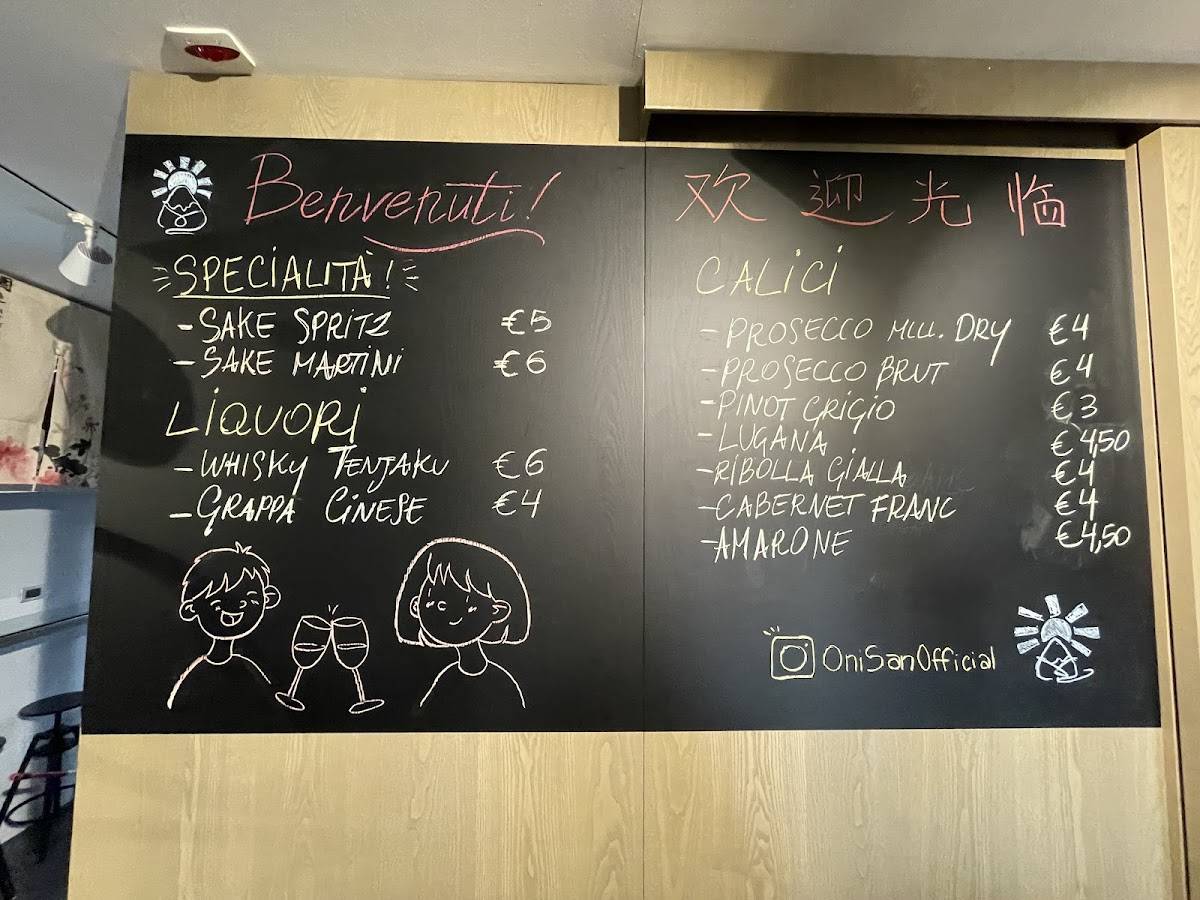 Benvenuti!
SPECIALITÀ!
- SAKE SPRITZ €5
- SAKE MARTINI €6
LIQUORI
- WHISKY TENJAKU €6
- GRAPPA CINESE €4
欢迎光临
CALICI
- PROSECCO MILL. DRY €4
- PROSECCO BRUT €4
- PINOT GRIGIO €3
- LUGANA €4,50
- RIBOLLA GIALLA €4
- CABERNET FRANC €4
- AMARONE €4,50
OniSanOfficial